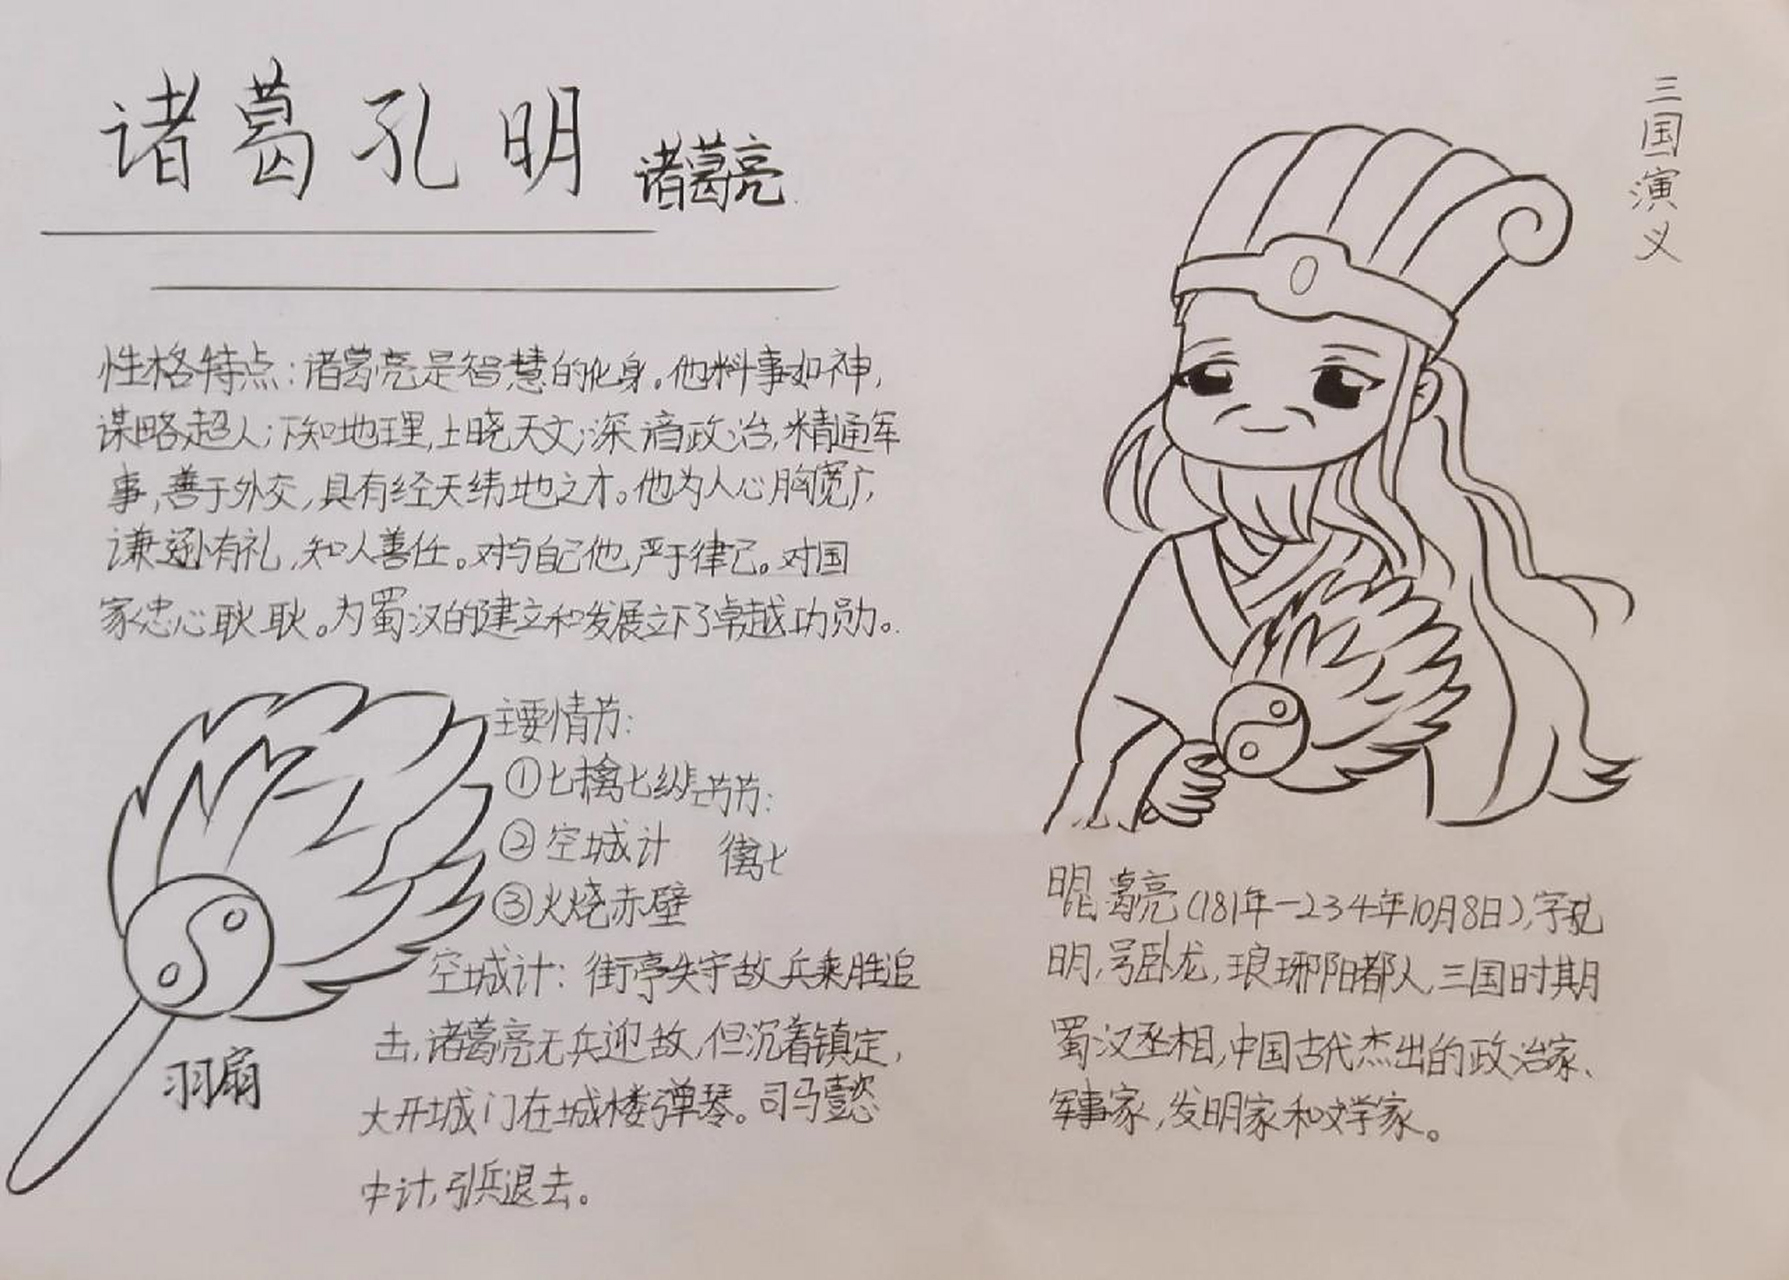 诸葛孔明
诸葛亮
三国演义
性格特点：诸葛亮是智慧的化身。他料事如神，
谋略超人；下知地理，上晓天文；深谙政治，精通军
事，善于外交，具有经天纬地之才。他为人心胸宽广
谦逊有礼，知人善任。对与自己他，严于律己。对国
家忠心耿耿。为蜀汉的建立和发展立下了卓越功勋。
主要情节：
①七擒七纵
节：
②空城计
七
③火烧赤壁
空城计：街亭失守敌兵乘胜追
击，诸葛亮无兵迎敌，但沉着镇定，
大开城门在城楼弹琴。司马懿
中计，引兵退去。
羽扇
葛亮(181年—234年10月8日)，字孔
明，号卧龙，琅琊阳都人，三国时期
蜀汉丞相，中国古代杰出的政治家、
军事家，发明家和文学家。